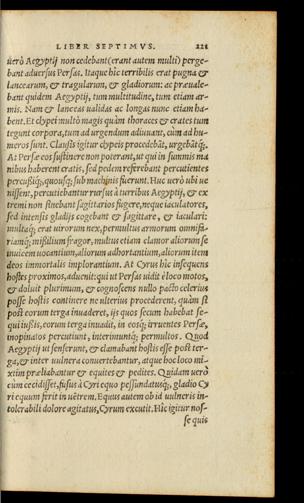 LIBER SEPTIMVS. 221
uerò Aegyptij non cedebant (erant autem multi) perge-
bant aduersus Persas. Itaque hîc terribilis erat pugna &
lancearum, & tragularum, & gladiorum: ac præuale-
bant quidem Aegyptij, tum multitudine, tum etiam ar-
mis. Nam & lanceas ualidas ac longas nunc etiam ha-
bent. Et clypei multò magis quàm thoraces & crates tum
tegunt corpora, tum ad urgendum adiuuant, cùm ad hu-
meros sint. Clausis igitur clypeis procedebāt, urgebātq́;.
At Persæ eos sustinere non poterant, ut qui in summis ma
nibus haberent crates, sed pedem referebant percutientes
percussiq́;, quousq; sub machinis fuerunt. Huc uerò ubi ue
nissent, percutiebantur rursus à turribus Aegyptij, & ex
tremi non sinebant sagittarios fugere, neque iaculatores,
sed intensis gladijs cogebant & sagittare, & iaculari:
multaq́; erat uirorum nex, permultus armorum omnifa-
riamq́; missilium fragor, multus etiam clamor aliorum se
inuicem uocantium, aliorum adhortantium, aliorum item
deos immortalis implorantium. At Cyrus hîc insequens
hostes proximos, aduenit: qui ut Persas uidit è loco motos,
& doluit plurimum, & cognoscens nullo pacto celerius
posse hostis continere ne ulterius procederent, quàm si
post eorum terga inuaderet, ijs quos secum habebat se-
qui iussis, eorum terga inuadit, in eosq́; irruentes Persæ,
inopinatos percutiunt, interimuntq́; permultos. Quod
Aegyptij ut senserunt, & clamabant hostis esse post ter-
ga, & inter uulnera conuertebantur, atque hoc loco mi-
xtim præliabantur & equites & pedites. Quidam uerò
cùm cecidisset, fusus à Cyri equo pessundatusq́;, gladio Cy
ri equum ferit in uētrem. Equus autem ob id uulneris in-
tolerabili dolore agitatus, Cyrum excutit. Hîc igitur nos-
se quis